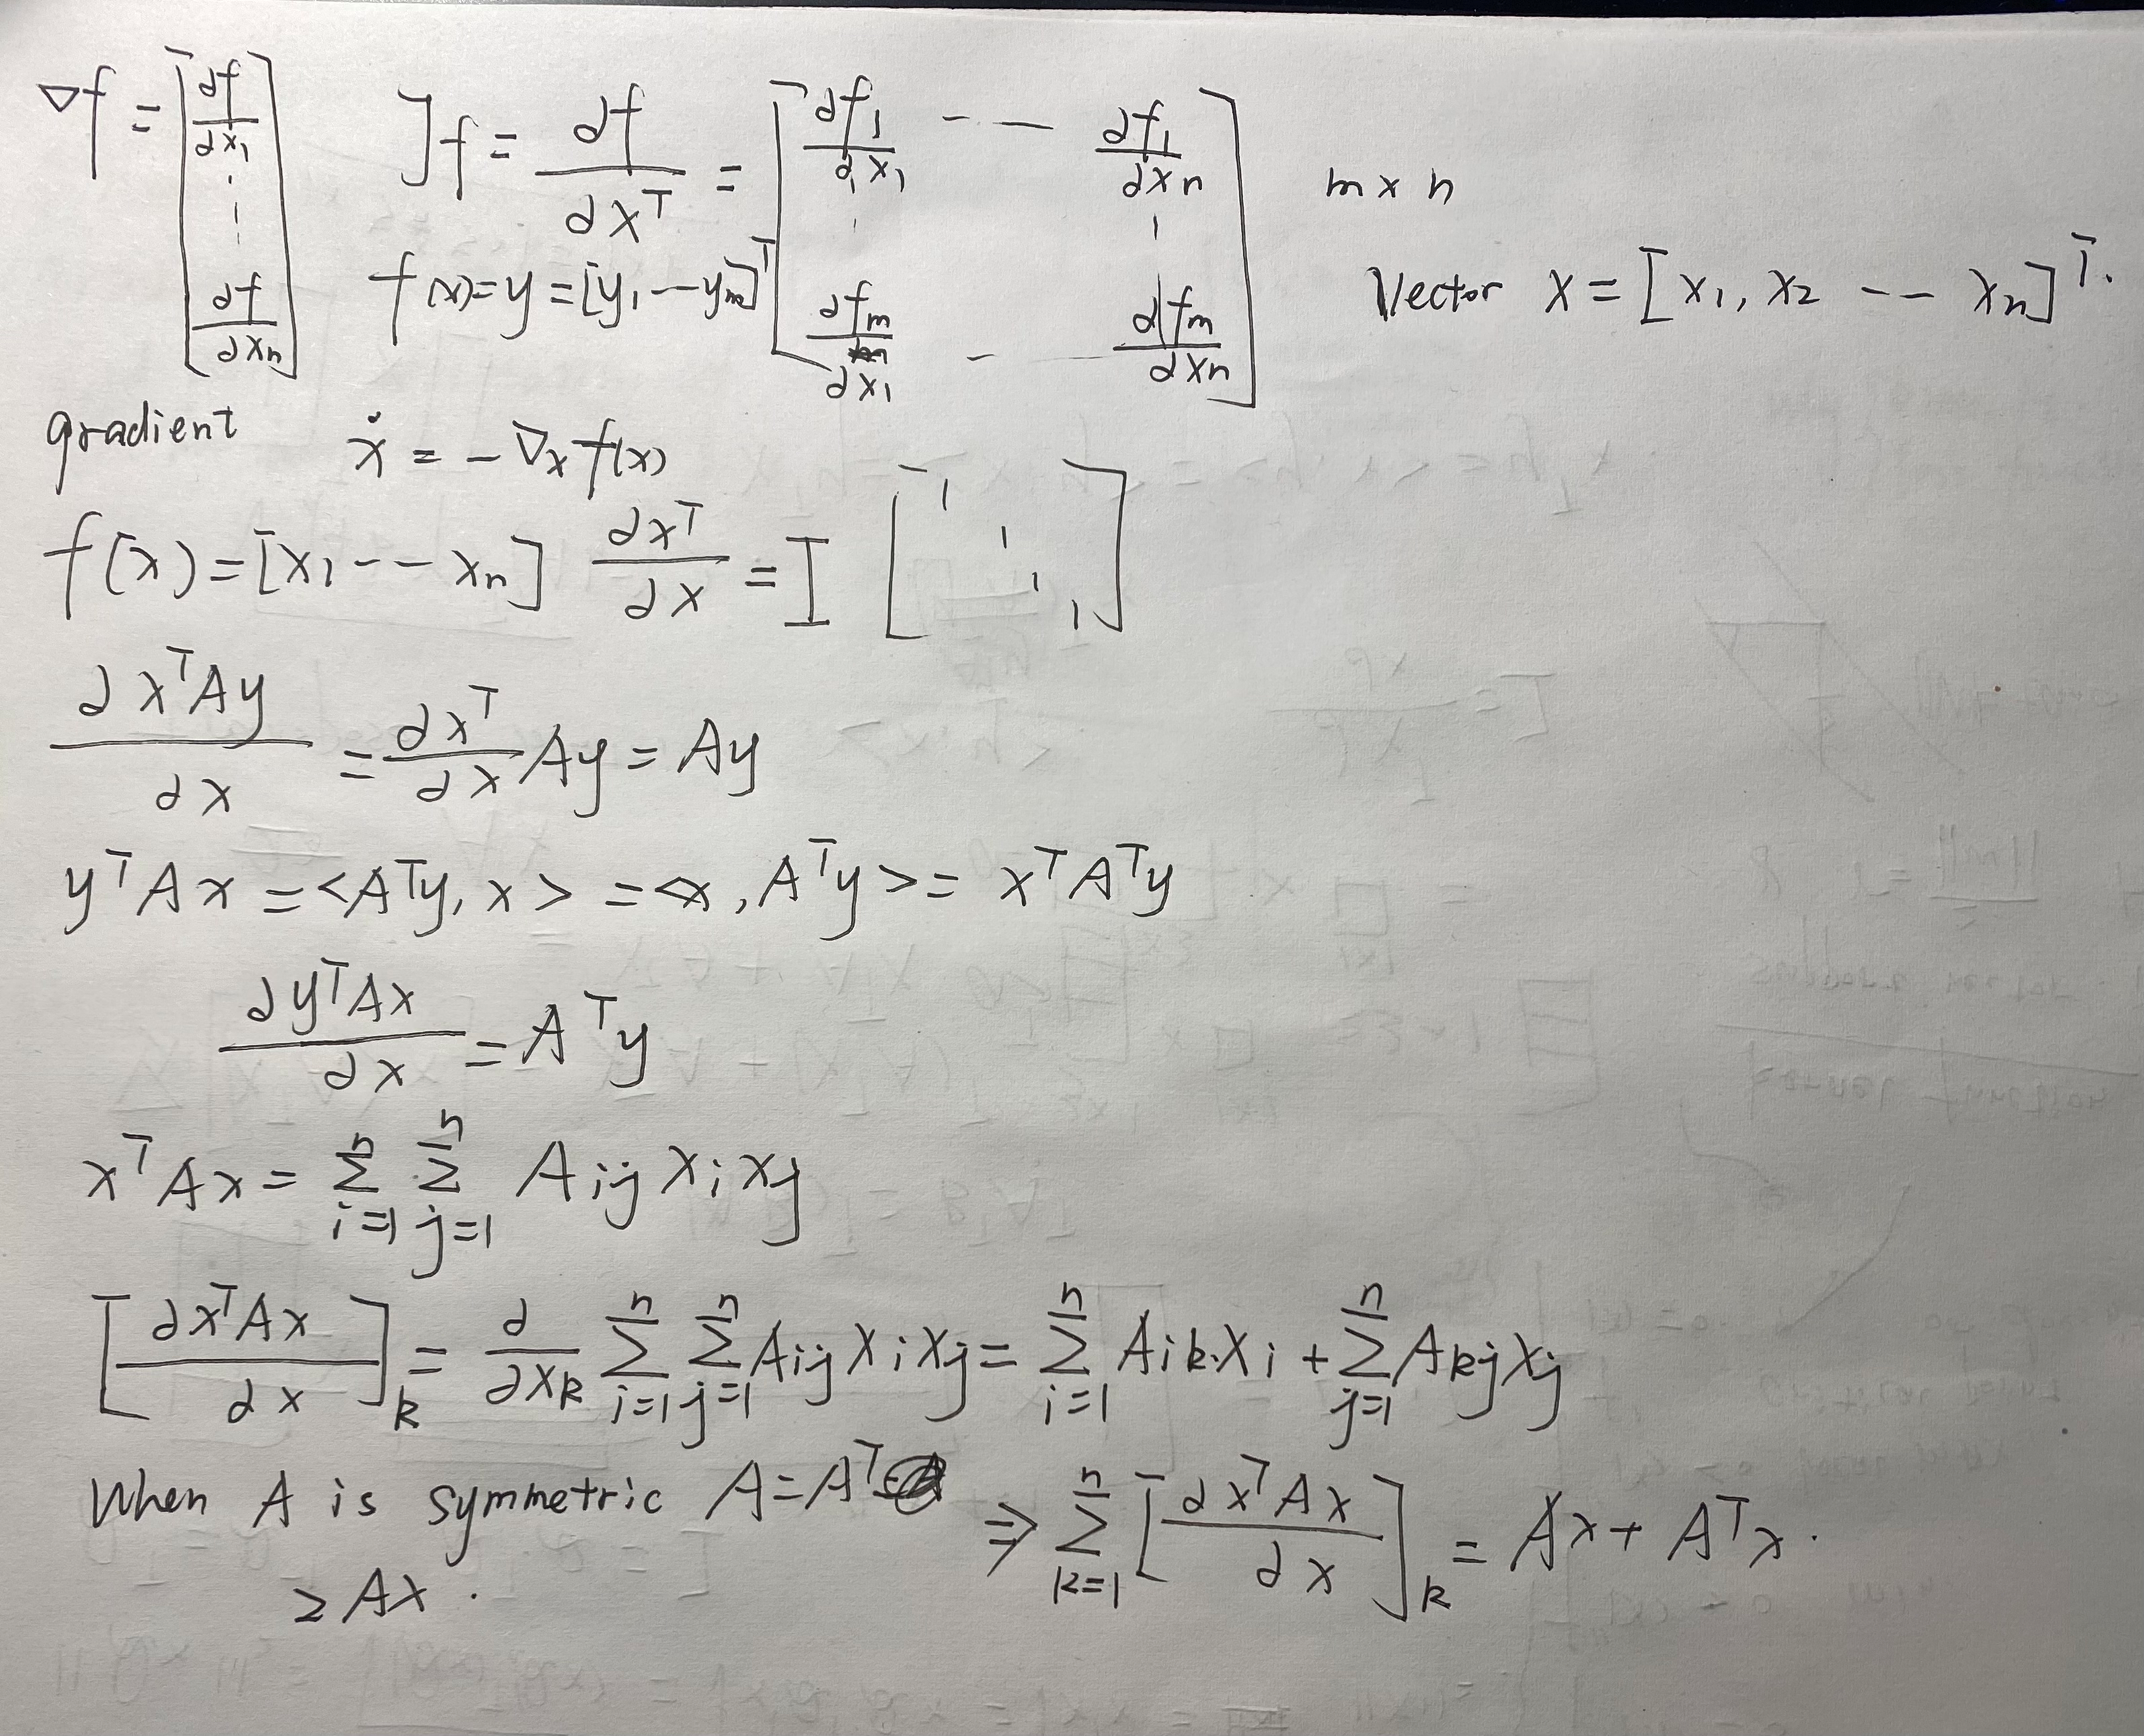 ∇f = [∂f/∂x₁ ⋮ ∂f/∂xₙ] Jf = ∂f/∂xᵀ = [∂f₁/∂x₁ -- ∂f₁/∂xₙ ⋮ ⋮ ∂fₘ/∂x₁ - - ∂fₘ/∂xₙ] m × n
f(x) = y = [y₁ -- yₘ]ᵀ Vector x = [x₁, x₂ -- xₙ]ᵀ.
gradient ẋ = - ∇ₓ f(x)
f(x) = [x₁ -- xₙ] ∂xᵀ/∂x = I [1 1 1 1]
∂xᵀAy/∂x = ∂xᵀ/∂x Ay = Ay
yᵀAx = <Aᵀy, x> = <x, Aᵀy> = xᵀAᵀy
∂yᵀAx/∂x = Aᵀy
xᵀAx = Σⁿᵢ₌₁ Σⁿⱼ₌₁ Aᵢⱼ xᵢ xⱼ
[∂xᵀAx/∂x]ₖ = ∂/∂xₖ Σⁿᵢ₌₁ Σⁿⱼ₌₁ Aᵢⱼ xᵢ xⱼ = Σⁿᵢ₌₁ Aᵢₖ xᵢ + Σⁿⱼ₌₁ Aₖⱼ xⱼ
When A is symmetric A = Aᵀ ⇒ Σⁿₖ₌₁ [∂xᵀAx/∂x]ₖ = Ax + Aᵀx.
2Ax.